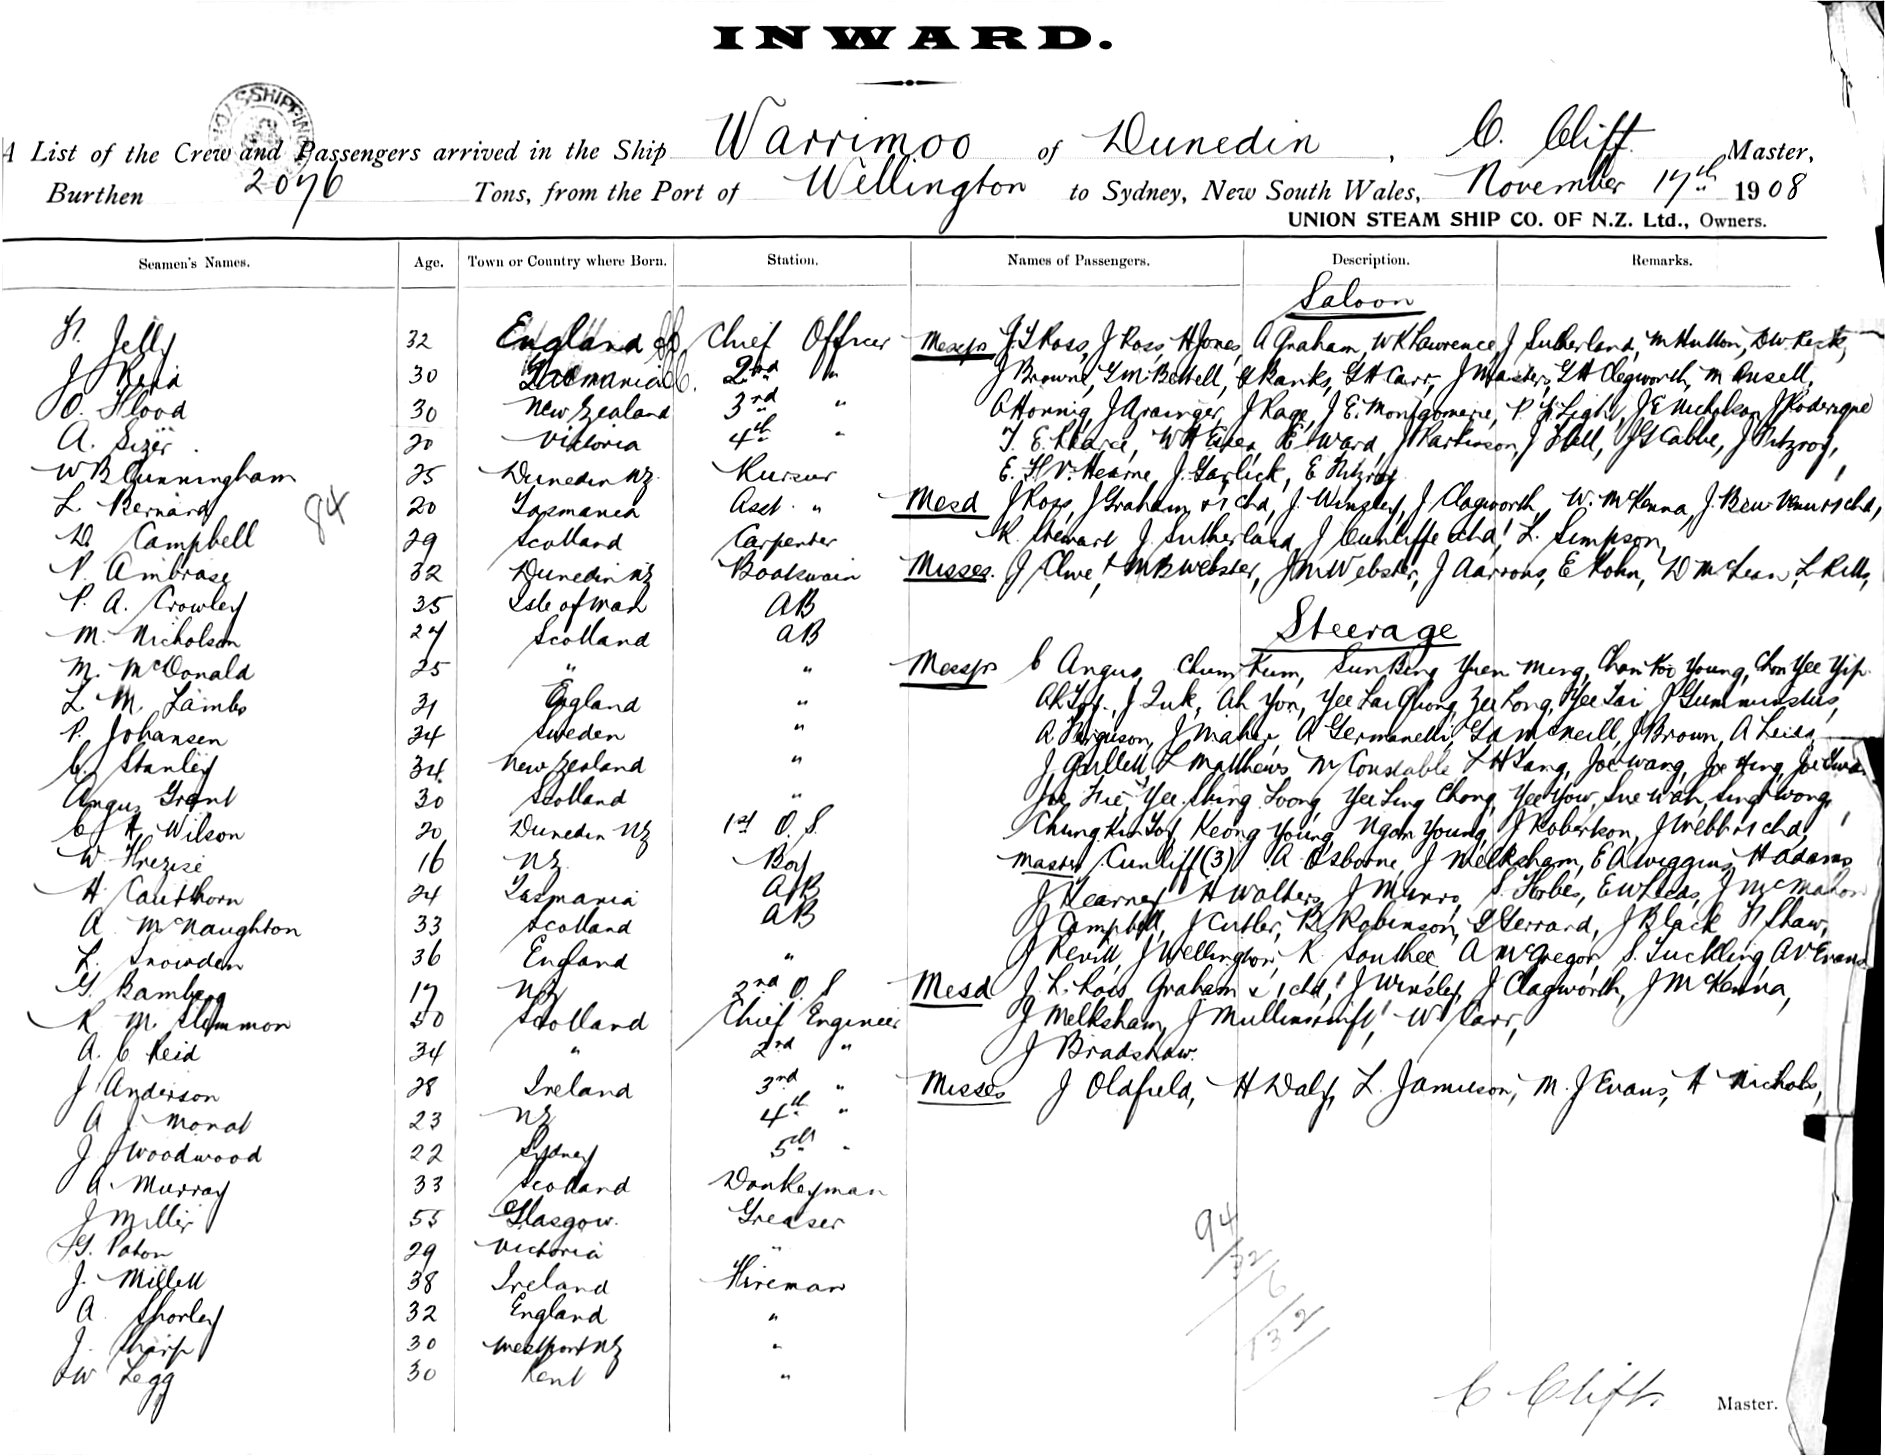 INWARD.
A List of the Crew and Passengers arrived in the Ship Warrimoo of Dunedin, C. Cliff Master,
Burthen 2076 Tons, from the Port of Wellington to Sydney, New South Wales, November 17th 1908
UNION STEAM SHIP CO. OF N.Z. Ltd., Owners.
Seamen's Names. Age. Town or Country where Born. Station. Names of Passengers. Description. Remarks.
Jelly 32 England Chief Officer
J Reid 30 Tasmania 2nd "
O. Flood 30 New Zealand 3rd "
A. Sizer 20 Victoria 4th "
W B Cunningham 25 Dunedin NZ Purser
L Bernard 20 Tasmania Asst. "
84
D. Campbell 29 Scotland Carpenter
P. Ambrose 32 Dunedin NZ Boatswain
P. A. Crowley 35 Isle of Man AB
M. Nicholson 27 Scotland AB
M. McDonald 25 " "
L M. Lambs 31 England "
P. Johansen 34 Sweden "
C. Stanley 34 New Zealand "
Angus Grant 30 Scotland "
C H Wilson 20 Dunedin NZ 1st O.S.
W. 16 NZ Boy
H Cawthorn 24 Tasmania AB
A McNaughton 33 Scotland AB
L. Snowden 36 England "
G. Bamberg 17 NZ 2nd O S
R M. Slemmon 50 Scotland Chief Engineer
A. C Reid 34 " 2nd "
J Anderson 28 Ireland 3rd "
A J Monat 23 NZ 4th "
J Woodwood 22 Sydney 5th "
A. Murray 33 Scotland Donkeyman
J Miller 55 Glasgow. Greaser
G. Paton 29 Victoria "
J. Millett 38 Ireland Fireman
A. Shorley 32 England "
J. Sharp 30 Westport NZ "
W Legg 30 Kent "
Saloon
Messrs J. L Ross, J Ross, H Jones, A Graham, W K Lawrence, J Sutherland, M Hutton, D W
J Browne, G M Bettell, Banks, G H Carr, J Masters, G H Clegworth, M Ansell,
A Hornig, J Grainger, J Page, J E. Montgomerie, P Light, J E Nicholson, J Roderique
T. E. Pearce, W H E Ward, J Parkinson, J Hall, J G Cabbe, J Fitzroy,
E. H V. Hearne, J. Garlick, E Fitzroy
Mesd J Ross, J Graham & 1 chd, J. Winsley, J Clagworth, W. McKenna, J. chd,
R. Stewart J. Sutherland J Cunliffe chd, L. Simpson,
Misses. J Clive, M B Webster, J M Webster, J Aarrons, E Kohn, D McLean, L
Steerage
Messrs C Angus, Chum Kum, Sun Bing Yuen Ming, Chan Koo Young, Chon Yee Yip.
Ah Toy, J Luk, Ah Yon, Yee Lai Quong, Zee Long, Yee Tai,
A Ferguson, J Maher, A Germanelli, McNeill, J Brown, A
J L Matthews, M Constable, L H Tang, Joe Wang, Joe Hing, Joe
Joe Yee Shing Loong, Yee Ling Chong, Yee Yow, Sue Wah, Sing Wong,
Chung Kin Toy, Keong Young, Ngan Young, J Robertson, J Webb & 1 chd,
Master Cunliff (3) A. Osborne, J Melksham, E A Wiggins, H Adams
J Kearney, H Walters, J Munro, S. Forbes, E W Leas, J McMahon
J Campbell, J Cutler, B Robinson, G Gerrard, J Black, Shaw,
J Revill, J Wellington, R Southee, A McGregor, S. Tuckling, A V Evans
Mesd J. L. Ross, Graham & 1 chd, J Winsley, J Clagworth, J McKenna,
J Melksham, J Mullinsnift, W Carr,
J Bradshaw.
Misses J Oldfield, H Daly, L. Jamieson, M. J Evans, H Nichols,
94
32
6
132
C Cliff. Master.